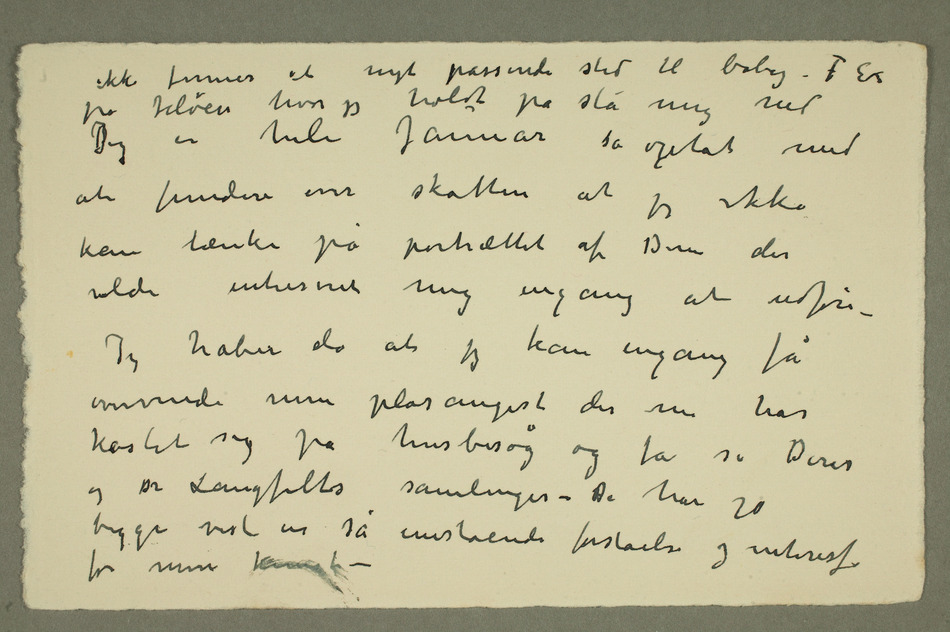 ikke finnes et nyt passende sted til bolig. F Ex
på Jeløen hvor jeg holdt på slå mig ned
Jeg er hele Januar så optat med
at fundere over skatten at jeg ikke
kan tænke på portrættet af Dem der
vilde interesseret mig engang at udføre –
Jeg håber da at jeg kan engang få
overvinde min plasangest der nu har
kastet sig på husbesøg og få se Deres
og Dr Langfeldts samlinger – De har jo
begge vist en så enestående forståelse og interesse
for min kunst –